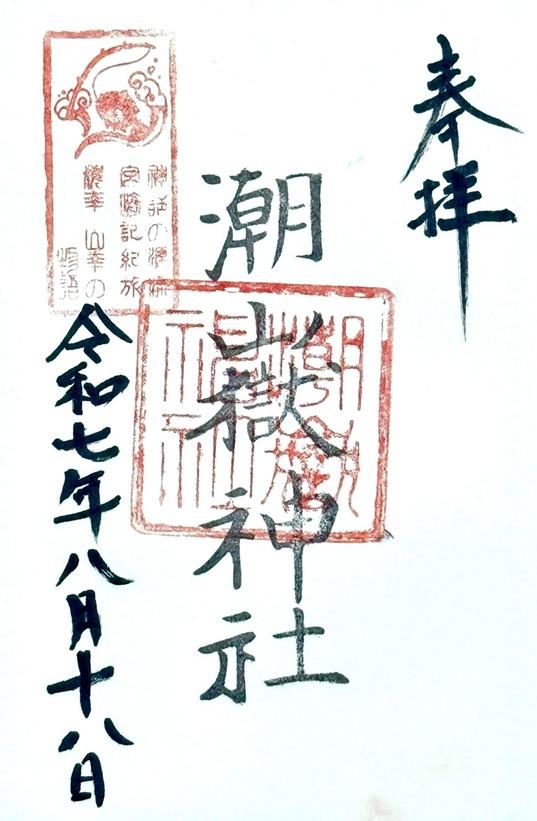 奉拝
潮嶽神社
潮嶽神社
神話の源流
宮崎記紀旅
海幸山幸の
物語
令和七年八月十八日